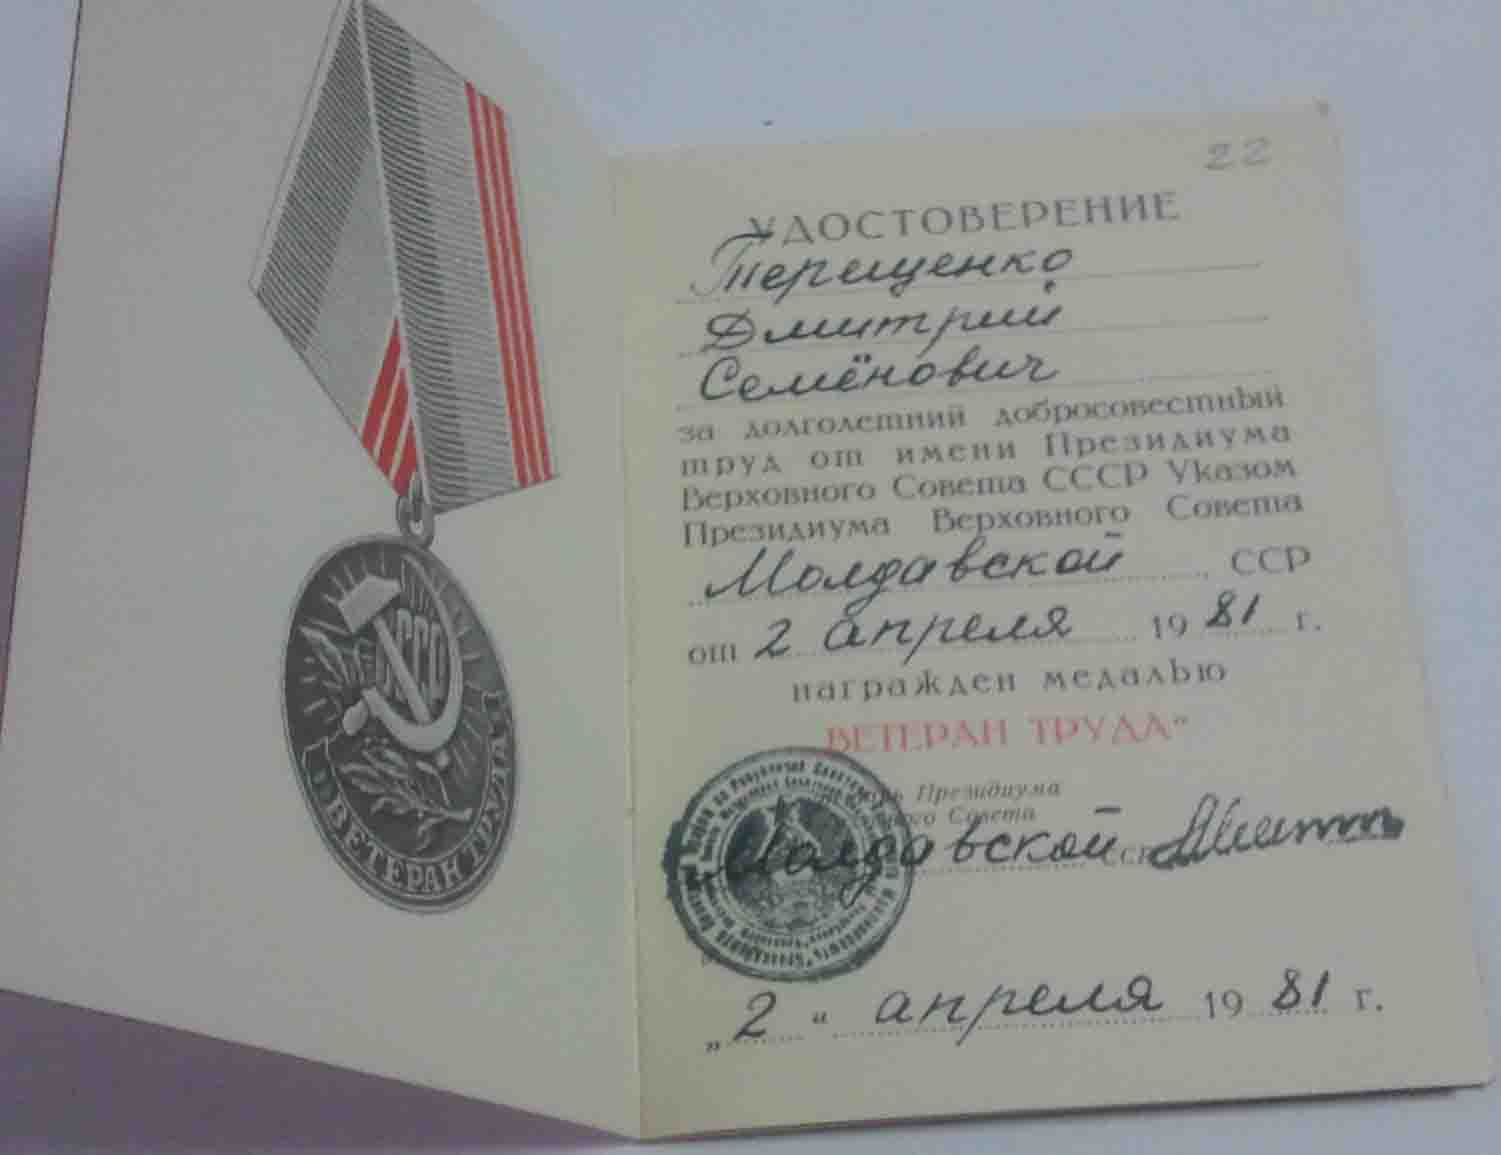 СССР
ВЕТЕРАН ТРУДА
22
УДОСТОВЕРЕНИЕ
Терещенко
Дмитрий
Семёнович
за долголетний добросовестный
труд от имени Президиума
Верховного Совета СССР Указом
Президиума Верховного Совета
Молдавской ССР
от 2 апреля 1981 г.
награжден медалью
ВЕТЕРАН ТРУДА"
Президиума
Совета
Молдавской ССР
„2" апреля 1981 г.